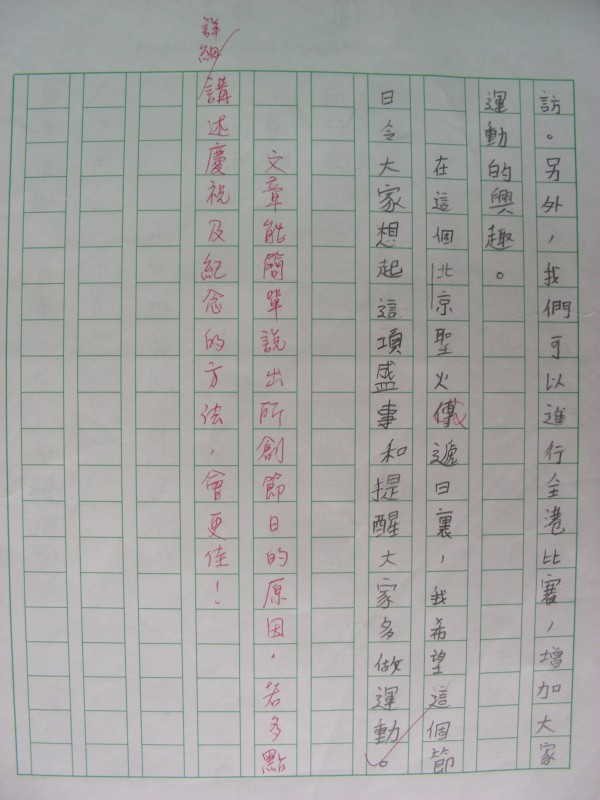 訪。另外，我們可以進行全港比賽，增加大家
運動的興趣。
在這個北京聖火傳遞日裏，我希望這個節
日令大家想起這項盛事和提醒大家多做運動。
文章能簡單說出所創節日的原因，若多點
詳細講述慶祝及紀念的方法，會更佳！